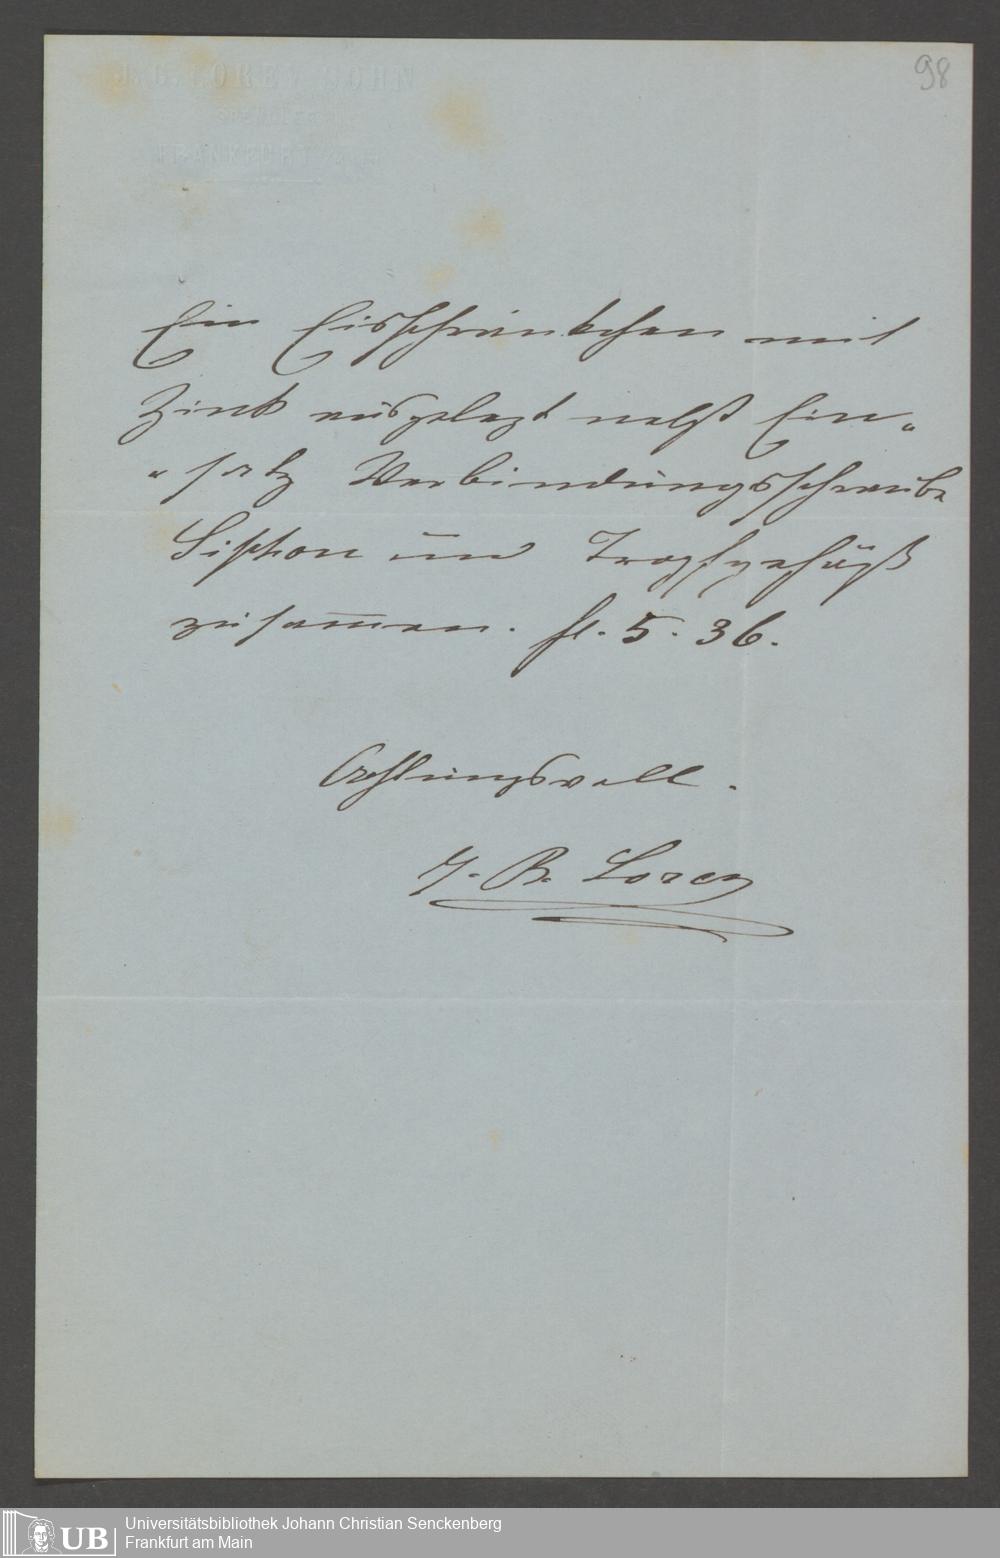 98
J. G. LOREY SOHN
FRANKFURT A/M
Ein Eisschränkchen mit
Zink ausgelegt nebst Ein„
„satz Verbindungsschraube
Siphon und Tropfgefäß
zusam̅en. fl. 5. 36.
Achtungsvoll.
J. B. Lorey
UB
Universitätsbibliothek Johann Christian Senckenberg
Frankfurt am Main